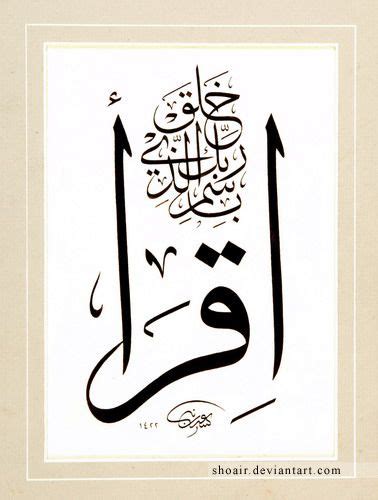 اقرأ
باسم
ربك الذي
خلق
١٤٢٢
shoair.deviantart.com